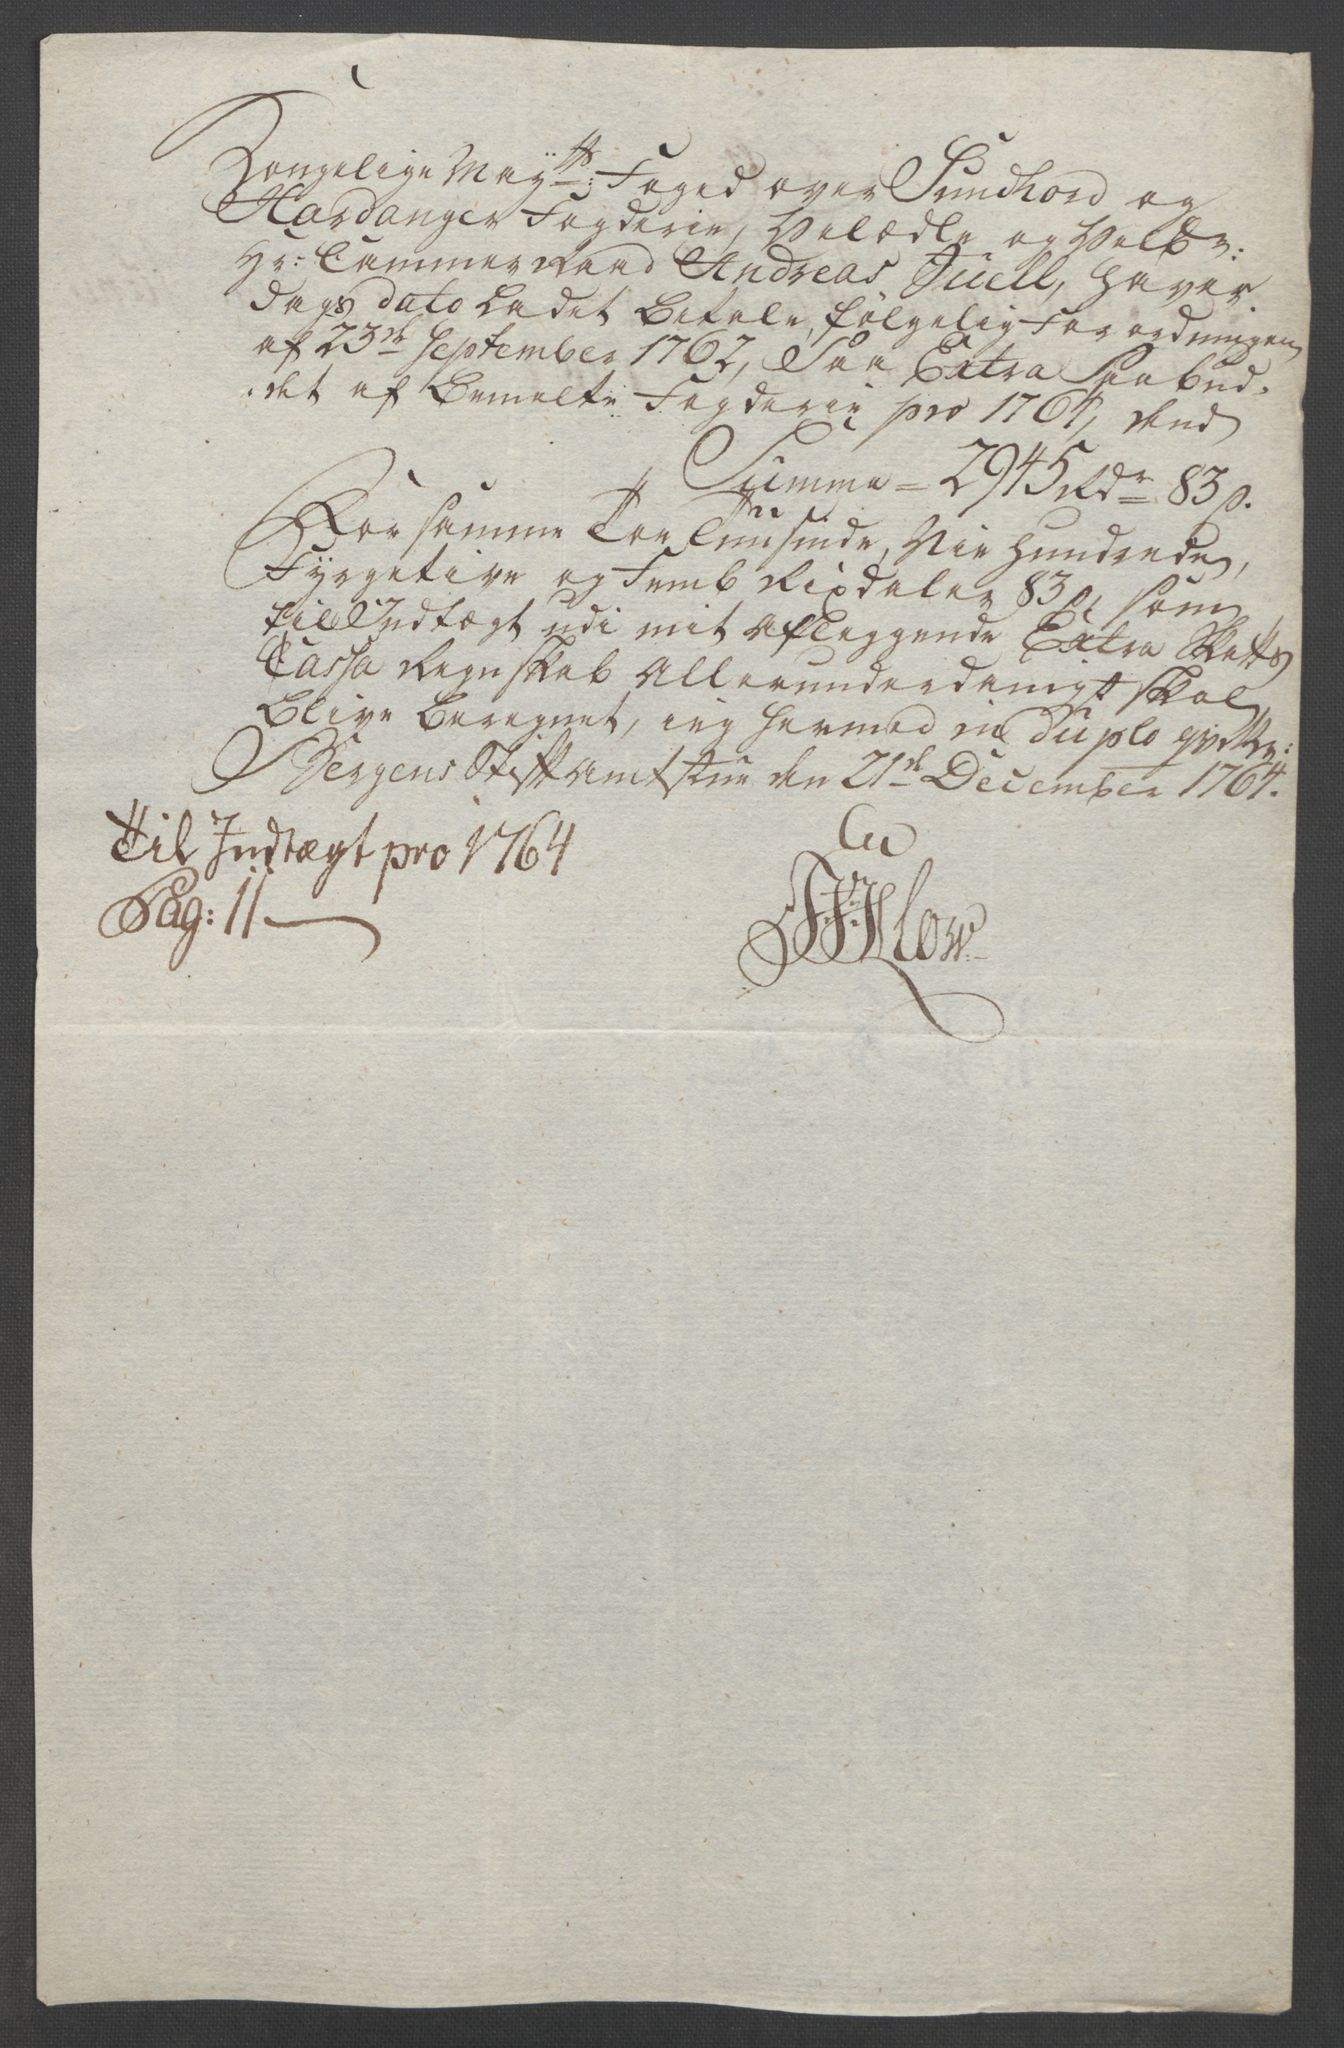 Kongelige Mayts: Foged over Sundhord og
Hardanger Fogderie, Velædle og Velbr:
Hr: Cammer Raad Andreas Juell, haver
dags dato ladet betale, følgelig Forordningen
af 23de September 1762, Saa Extra Paabud-
det af bemelte Fogderie pro 1764, dend
Summa = 2945 Rdr 83 s.
For samme Toe Tuusinde, Nie Hundrede,
Fyrgetive og Femb Rixdaler 83 s, som
til Indtægt udi mit aflæggende Extra Skatts
Cassa Regnskab allerunderdanigst skal
blive beregnet, ieg hermed in duplo qvitter:
Bergens Stiftamtstue den 21de December 1764.
Til Indtægt pro 1764
Pag: 11
Klow